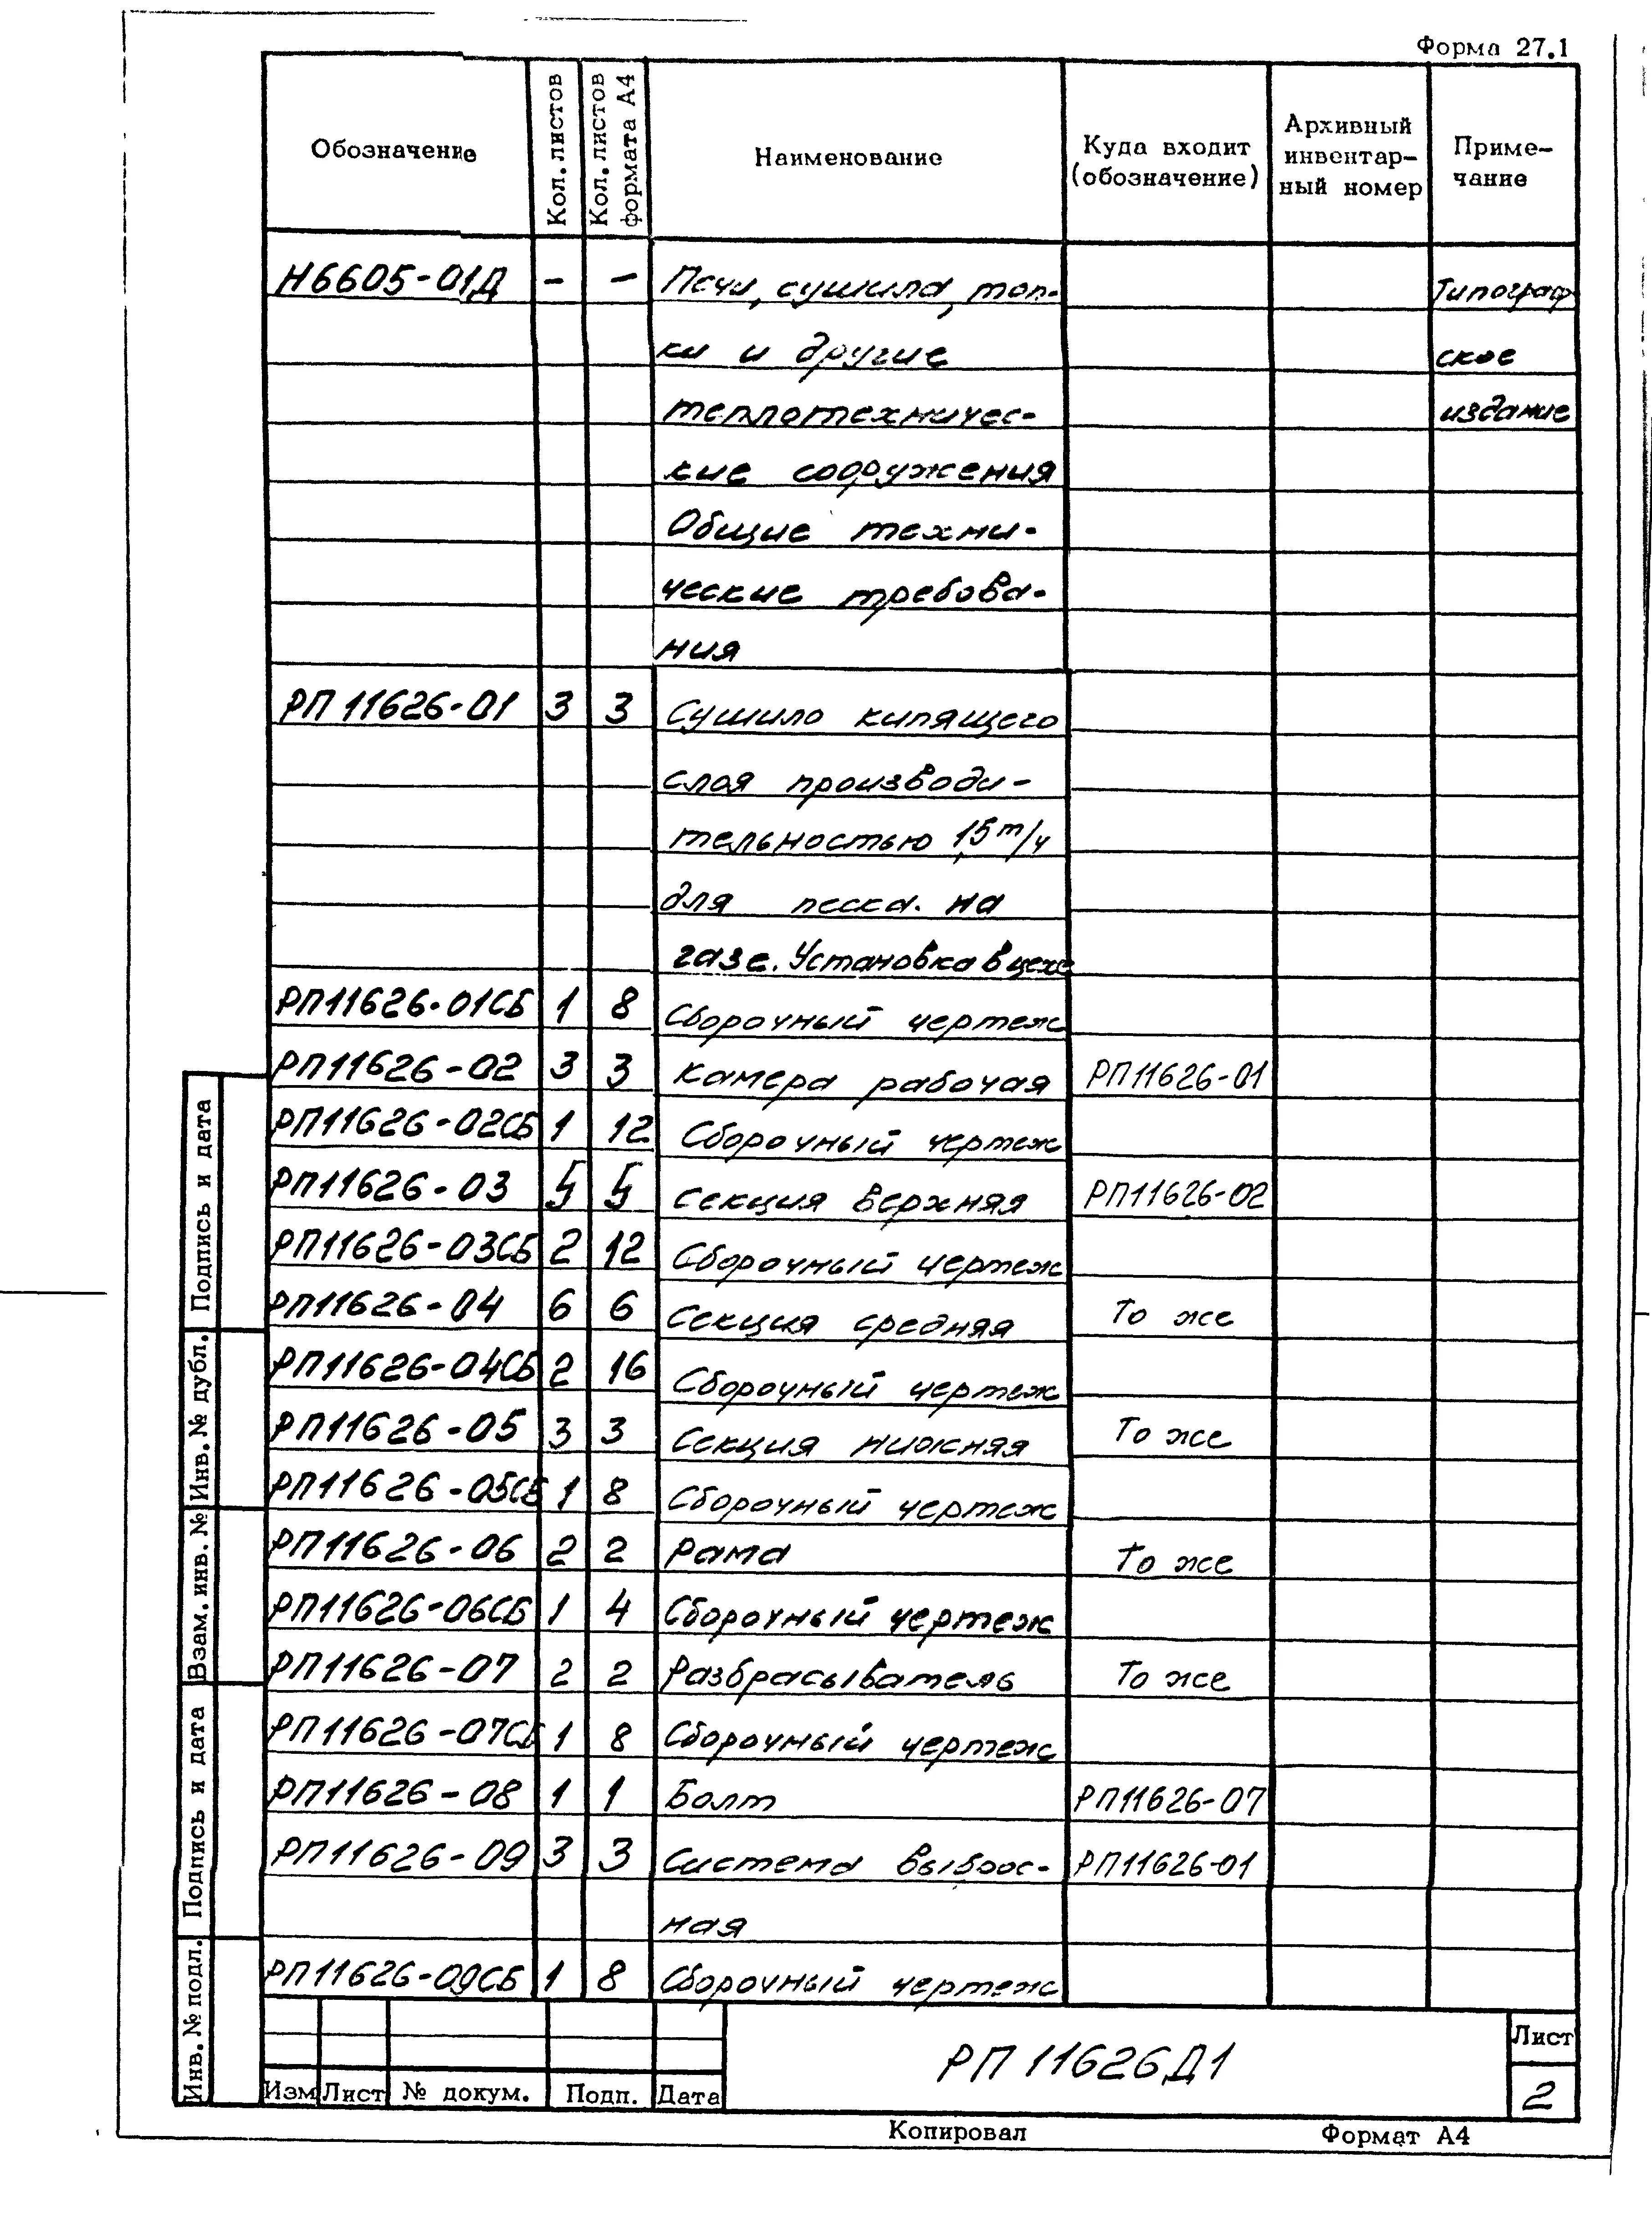 Форма 27.1
Обозначение
Кол. листов
Кол. листов формата А4
Наименование
Куда входит (обозначение)
Архивный инвентар-ный номер
Приме-чание
Н6605-01Д - - Печи, сушила, топ- Типограф
ки и другие ское
теплотехничес- издание
кие сооружения
Общие техни-
ческие требова-
ния
РП 11626-01 3 3 Сушило кипящего
слоя производи-
тельностью 15 т/ч
для песка на
газе. Установка в цехе
РП11626-01СБ 1 8 Сборочный чертеж
РП11626-02 3 3 Камера рабочая РП11626-01
РП11626-02СБ 1 12 Сборочный чертеж
РП11626-03 5 5 Секция верхняя РП11626-02
РП11626-03СБ 2 12 Сборочный чертеж
РП11626-04 6 6 Секция средняя То же
РП11626-04СБ 2 16 Сборочный чертеж
РП11626-05 3 3 Секция нижняя То же
РП11626-05СБ 1 8 Сборочный чертеж
РП11626-06 2 2 Рама То же
РП11626-06СБ 1 4 Сборочный чертеж
РП11626-07 2 2 Разбрасыватель То же
РП11626-07СБ 1 8 Сборочный чертеж
РП11626-08 1 1 Болт РП11626-07
РП11626-09 3 3 Система выброс- РП11626-01
ная
РП11626-09СБ 1 8 Сборочный чертеж
Подпись и дата
Инв. № дубл.
Взам. инв. №
Подпись и дата
Инв. № подл.
Изм Лист № докум. Подп. Дата
РП 11626Д1
Лист
2
Копировал Формат А4